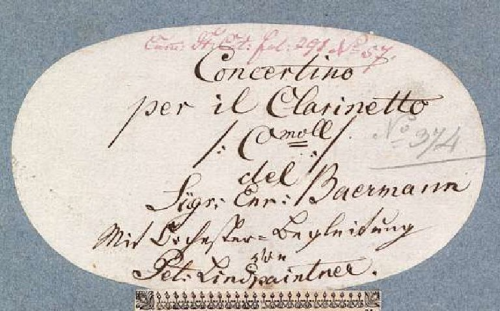 fol: 291 No 57
Concertino
per il Clarinetto
No 374
/: C moll :/
del
Sigr: Enr: Baermann
Mit Orchester=Begleitung
von
Pet: Lindpaintner.